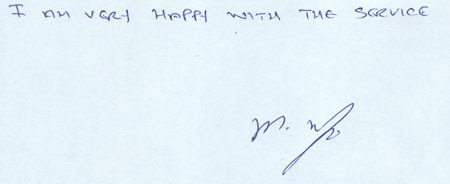 I AM VERY HAPPY WITH THE SERVICE